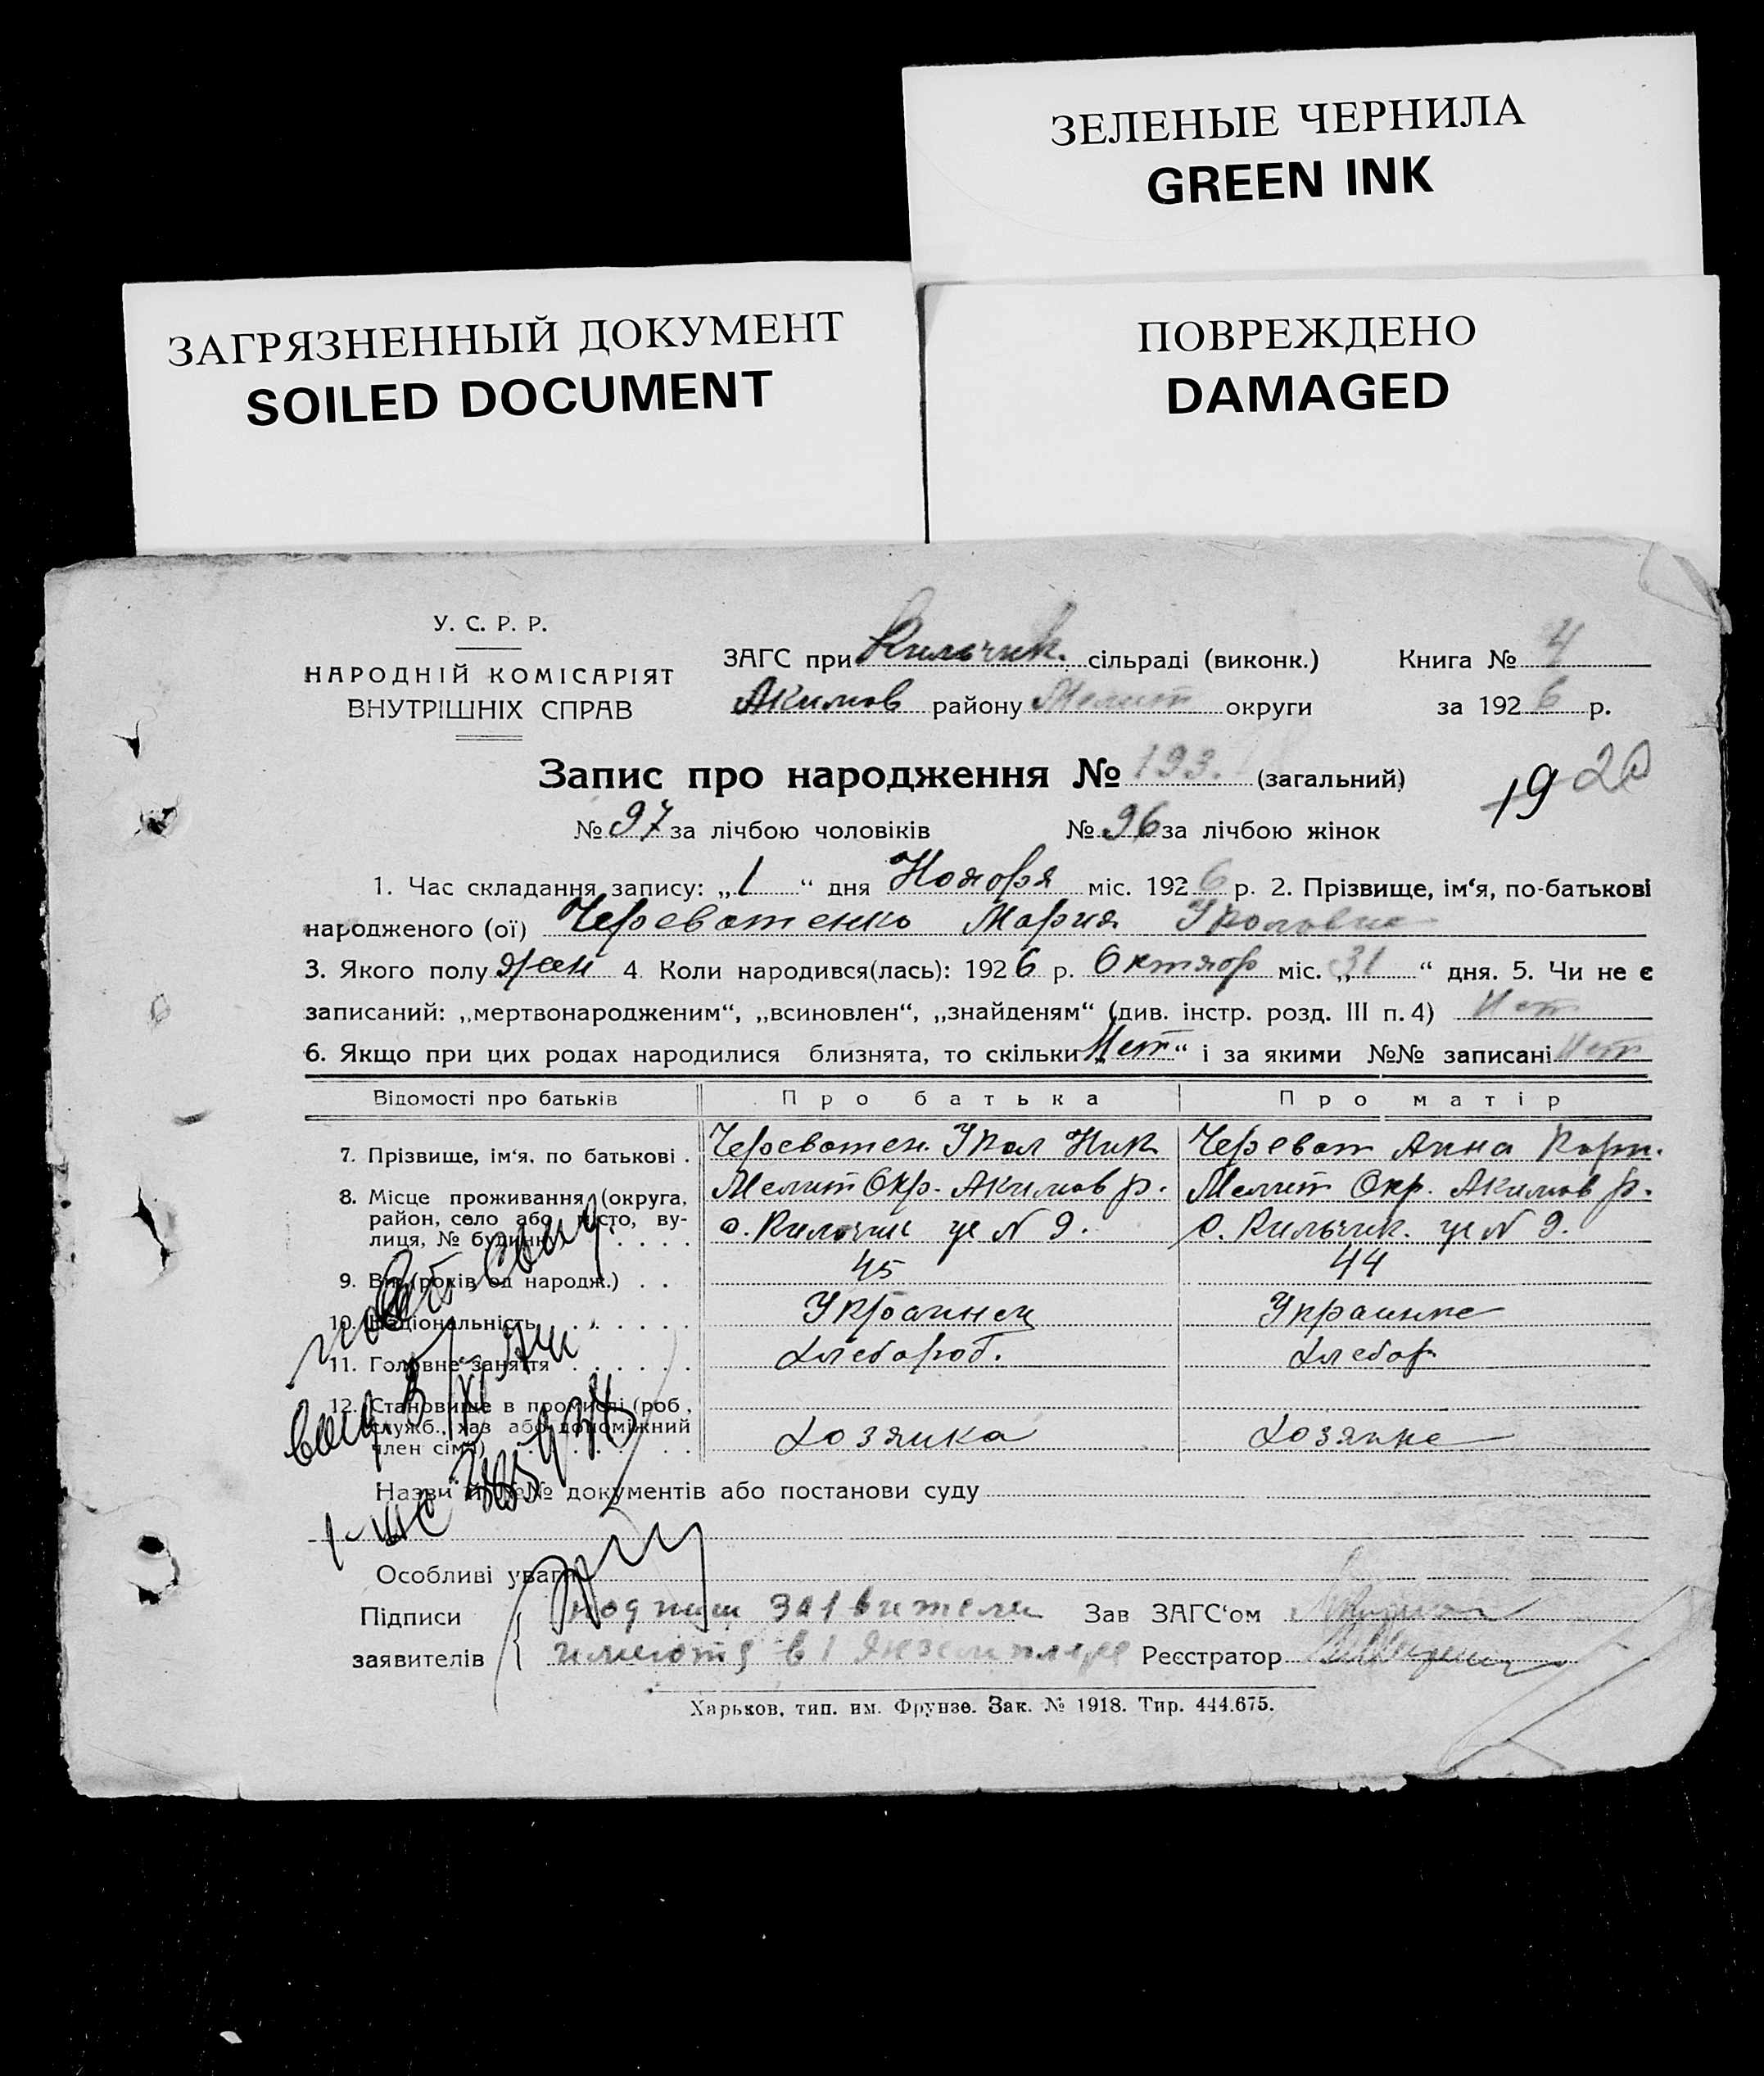 ЗЕЛЕНЫЕ ЧЕРНИЛА
GREEN INK
ЗАГРЯЗНЕННЫЙ ДОКУМЕНТ
SOILED DOCUMENT
ПОВРЕЖДЕНО
DAMAGED
У. С. Р. Р.
НАРОДНІЙ КОМІСАРІЯТ
ВНУТРІШНІХ СПРАВ
ЗАГС при Кильчик. сільраді (виконк.) Книга № 4
Акимов району Мелит округи за 1926 р.
Запис про народження № 193. (загальний)
19 20
№ 97 за лічбою чоловіків № 96 за лічбою жінок
1. Час складання запису: „1“ дня Ноября міс. 1926 р. 2. Прізвище, ім‘я, по-батькові
народженого (ої) Череватенко Мария
3. Якого полу жен 4. Коли народився(лась): 1926 р. Октябр міс. „31“ дня. 5. Чи не є
записаний: „мертвонародженим“, „всиновлен“, „знайденям“ (див. інстр. розд. III п. 4) Нет
6. Якщо при цих родах народилися близнята, то скільки „Нет“ і за якими №№ записані Нет
Відомості про батьків Про батька Про матір
7. Прізвище, ім‘я, по батькові . Череватен. Ник Череват Анна Карп.
8. Місце проживання (округа, район, село або місто, вулиця, № будинку) . . . . Мелит Окр. Акимов р. Мелит Окр. Акимов р.
с. Кильчик ул N 9. с. Кильчик. ул N 9.
9. Вік (років од народж.) . . 45 44
10. Національність . . . . . . Украинец Украинка
11. Головне заняття . . . . . . Хлебороб. Хлебор
12. Становище в промислі (роб., служб., хаз. або допоміжний член сім‘ї) Хозяика Хозяика
Назви й №№ документів або постанови суду
Особливі уваги
Підписи подписи заявители Зав ЗАГС‘ом
заявителів имеются в 1 экземпляре Реєстратор
Харьков, тип. им. Фрунзе. Зак. № 1918. Тир. 444.675.